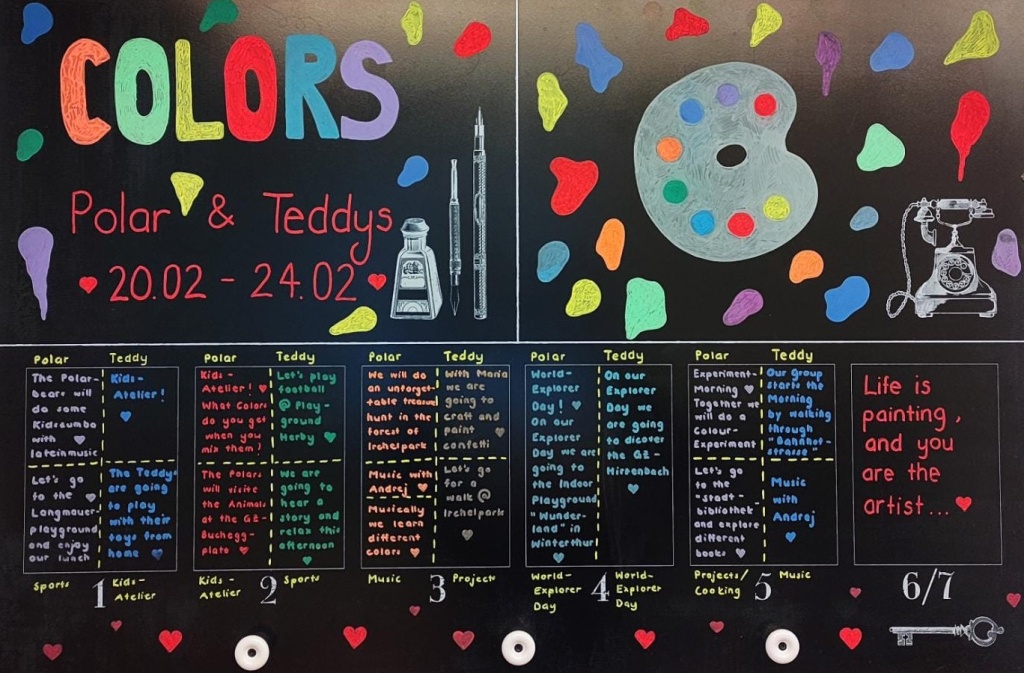 COLORS
Polar & Teddys
20.02 - 24.02
Polar
The Polar-
bears will
do some
Kidszumba
with
lateinmusic
Let's go
to the
Langmauer-
playground
and enjoy
our lunch
Sports
Teddy
Kids-
Atelier!
The Teddys
are going
to play
with their
toys from
home
Kids-
Atelier
1
Polar
Kids-
Atelier!
What Colors
do you get
when you
mix them?
The Polars
will visite
the Animals
at the GZ-
Buchegg-
platz
Kids-
Atelier
Teddy
Let's play
football
@ Play-
ground
Hardy
We are
going to
hear a
story and
relax this
afternoon
Sports
2
Polar
We will do
an unforget-
table treasure
hunt in the
forest of
Irchelpark
Music with
Andrej
Musically
we learn
different
colors
Music
Teddy
With Maria
we are
going to
craft and
paint
confetti
Let's go
for a
walk @
Irchelpark
Projects
3
Polar
World-
Explorer
Day!
On our
Explorer
Day we are
going to
the Indoor
Playground
"Wunder-
land" in
Winterthur
World-
Explorer
Day
Teddy
On our
Explorer
Day we
are going
to dicover
the GZ-
Hirzenbach
World-
Explorer
Day
4
Polar
Experiment-
Morning
Together we
will do a
Colour-
Experiment
Let's go
to the
"Stadt-
bibliothek"
and explore
different
books
Projects/
Cooking
Teddy
Our group
starts the
Morning
by walking
through
"Bahnhof-
strasse"
Music
with
Andrej
Music
5
Life is
painting,
and you
are the
artist...
6/7